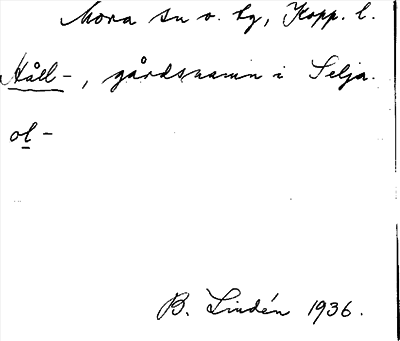 Mora sn o. tg, Kopp. l.
Håll-, gårdsnamn i Selja.
ol-
B. Lindén 1936.